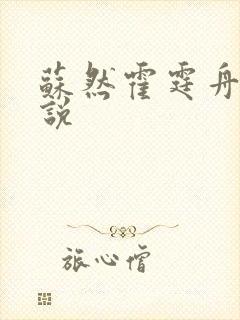 蘇然霍霆舟
說
旅心僧